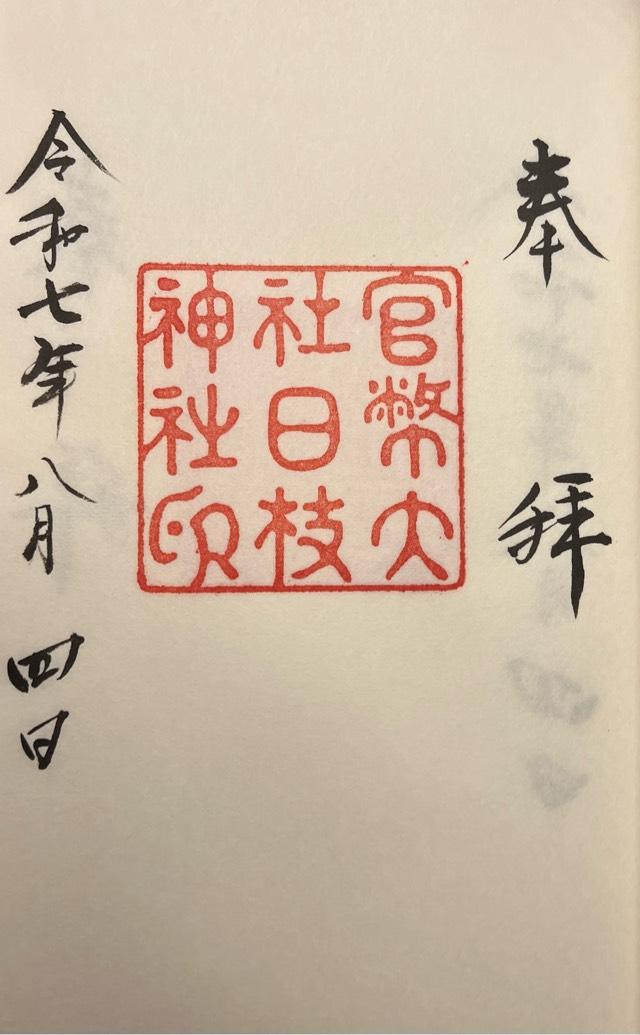 奉拝
官幣大
社日枝
神社印
令和七年八月四日